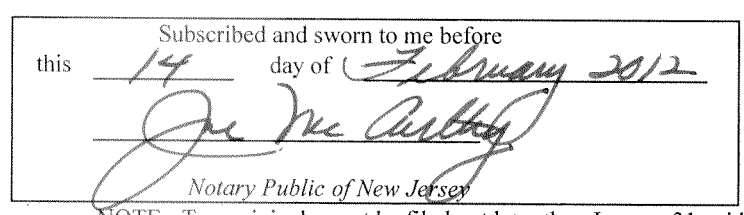 Subscribed and sworn to me before
this 14 day of February 2012
Joe McCarthy
Notary Public of New Jersey
NOTE